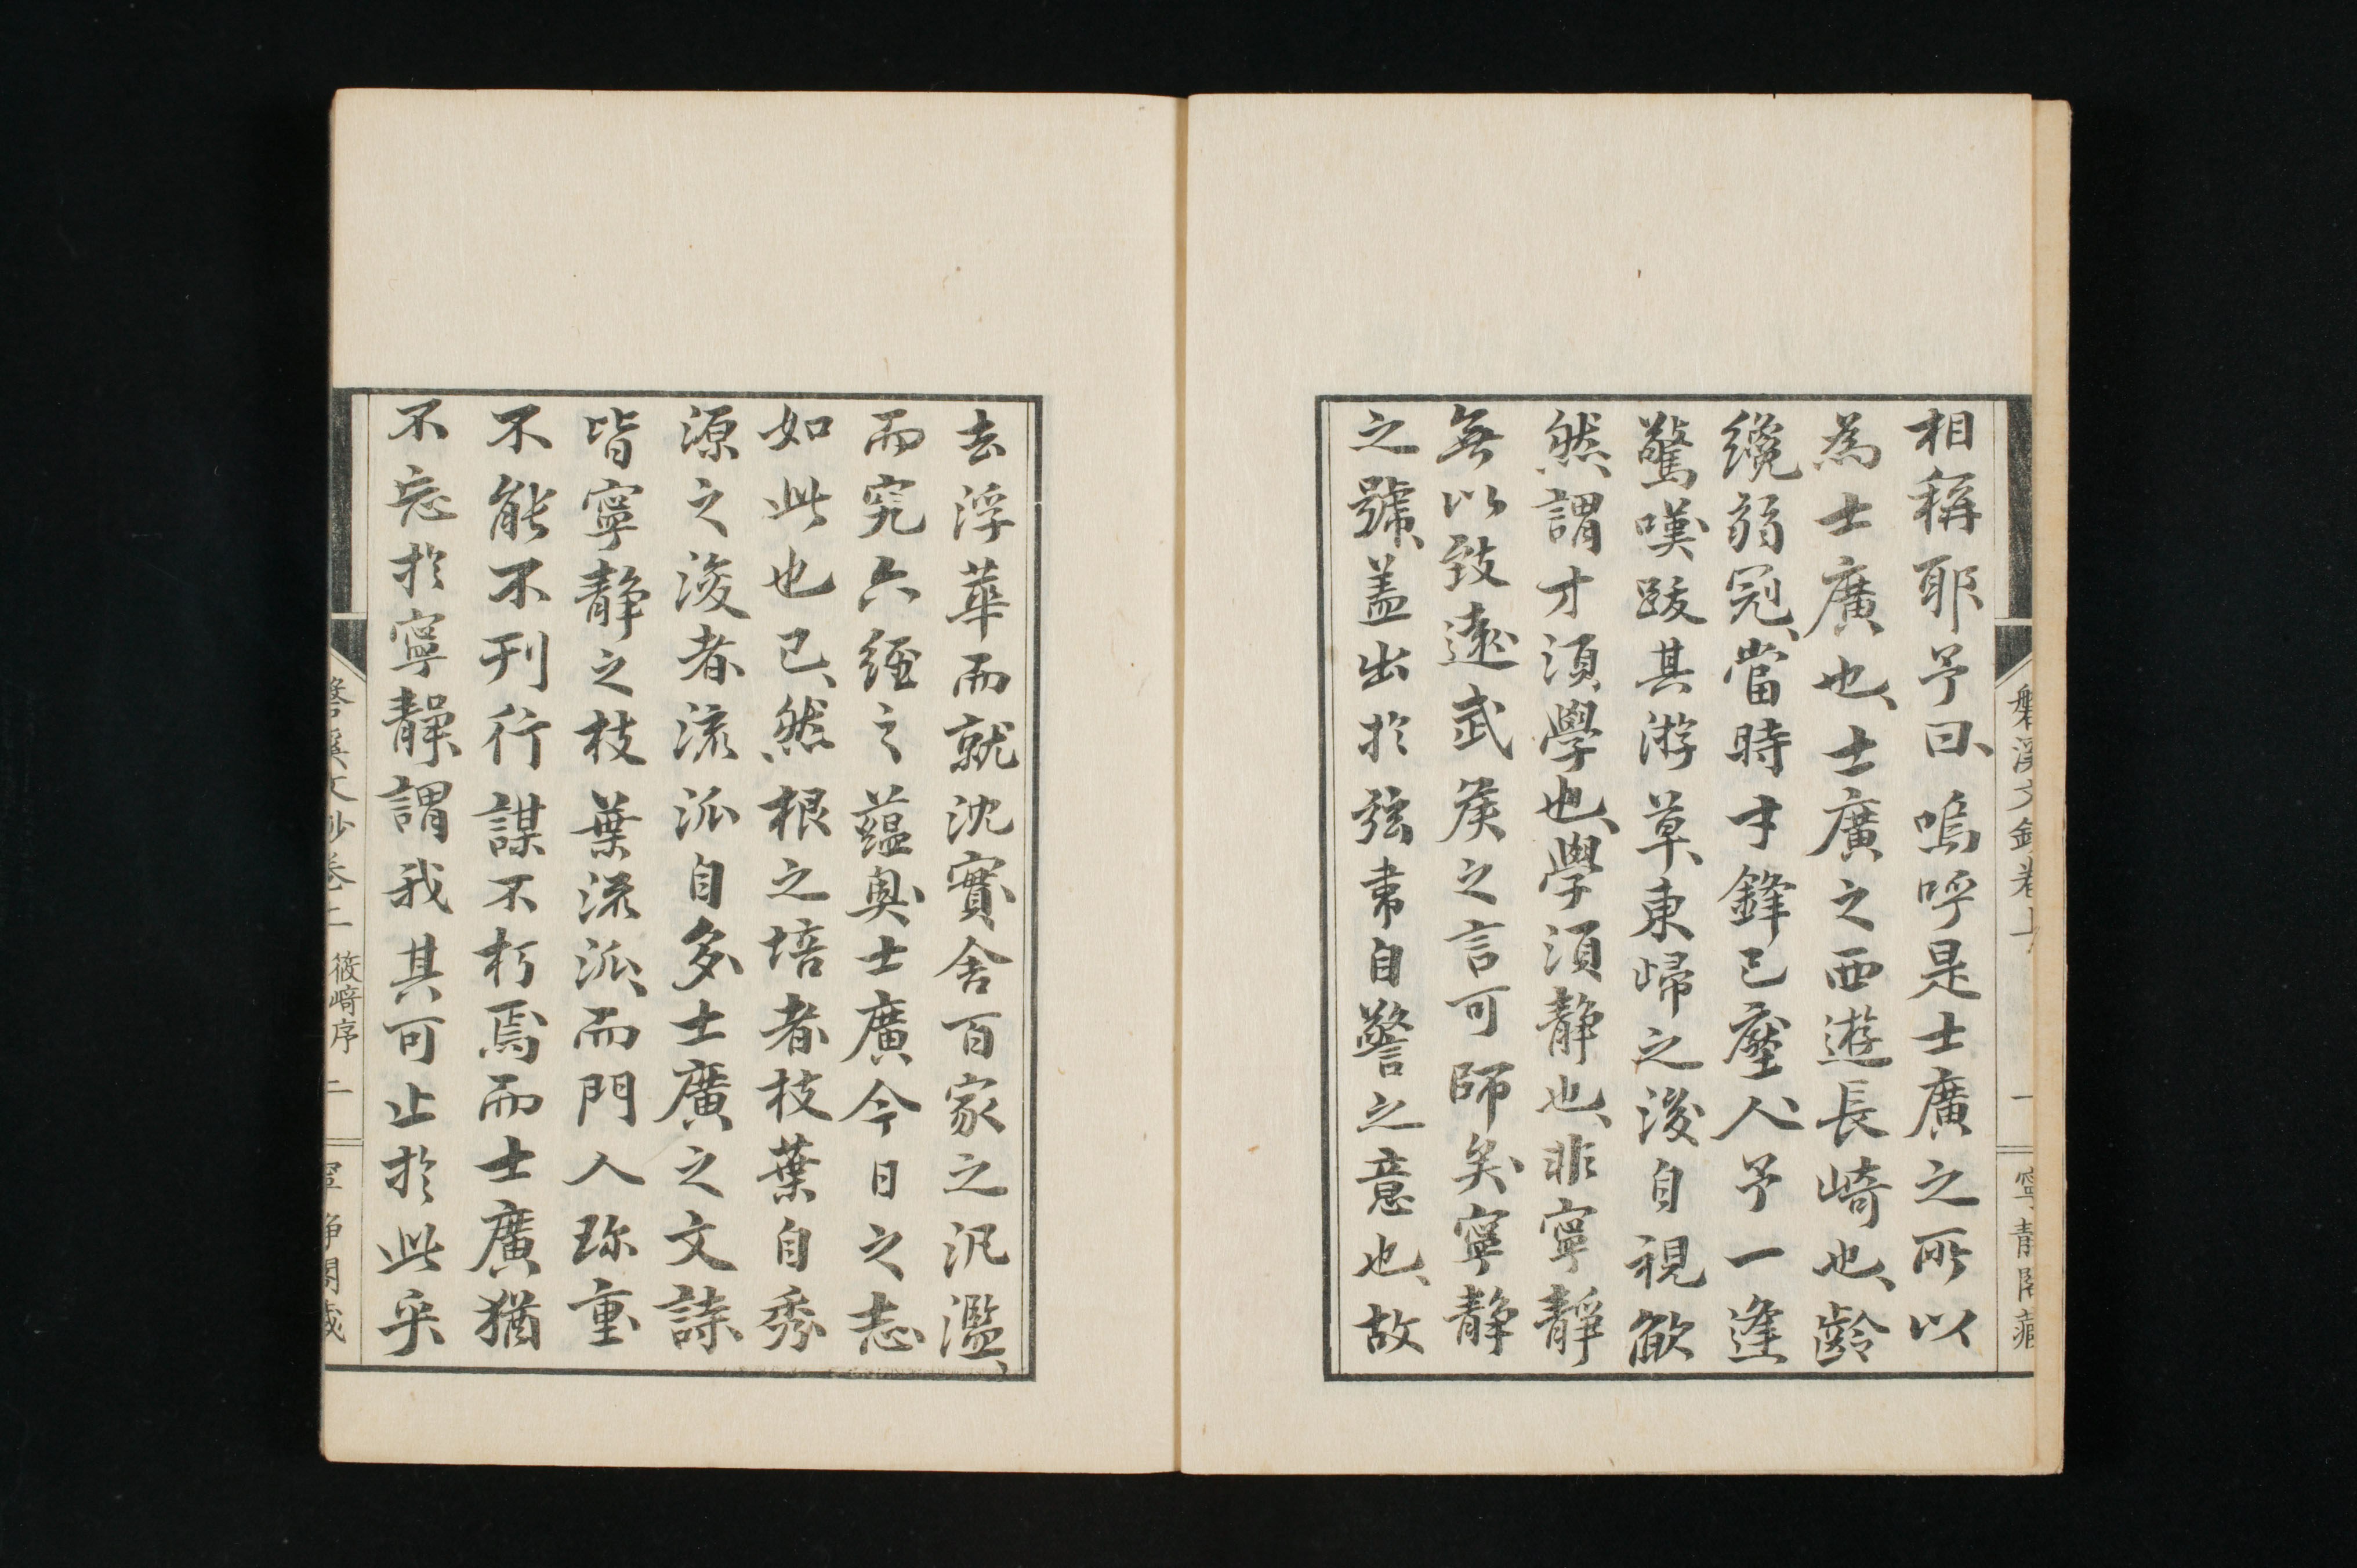 相稱耶予曰、嗚呼是士廣之所以
為士廣也、士廣之西遊長崎也、齡
纔弱冠、當時才鋒已壓人、予一逢
驚嘆跋其游草、東歸之後自視歉
然、謂才須學也、學須靜也、非寧靜
無以致遠武侯之言可師矣寧靜
之號、蓋出於弦韋自警之意也、故
去浮華而就沈實舍百家之汎濫、
而究六經之蘊奧士廣今日之志
如此也已、然根之培者枝葉自秀
源之浚者流派自多士廣之文詩
皆寧靜之枝葉流派、而門人珎重
不能不刊行謀不朽焉而士廣猶
不忘於寧靜謂我其可止於此乎
磐溪文鈔卷上
一
寧靜閣藏
磐溪文鈔卷二
筱崎序
二
寧靜閣藏